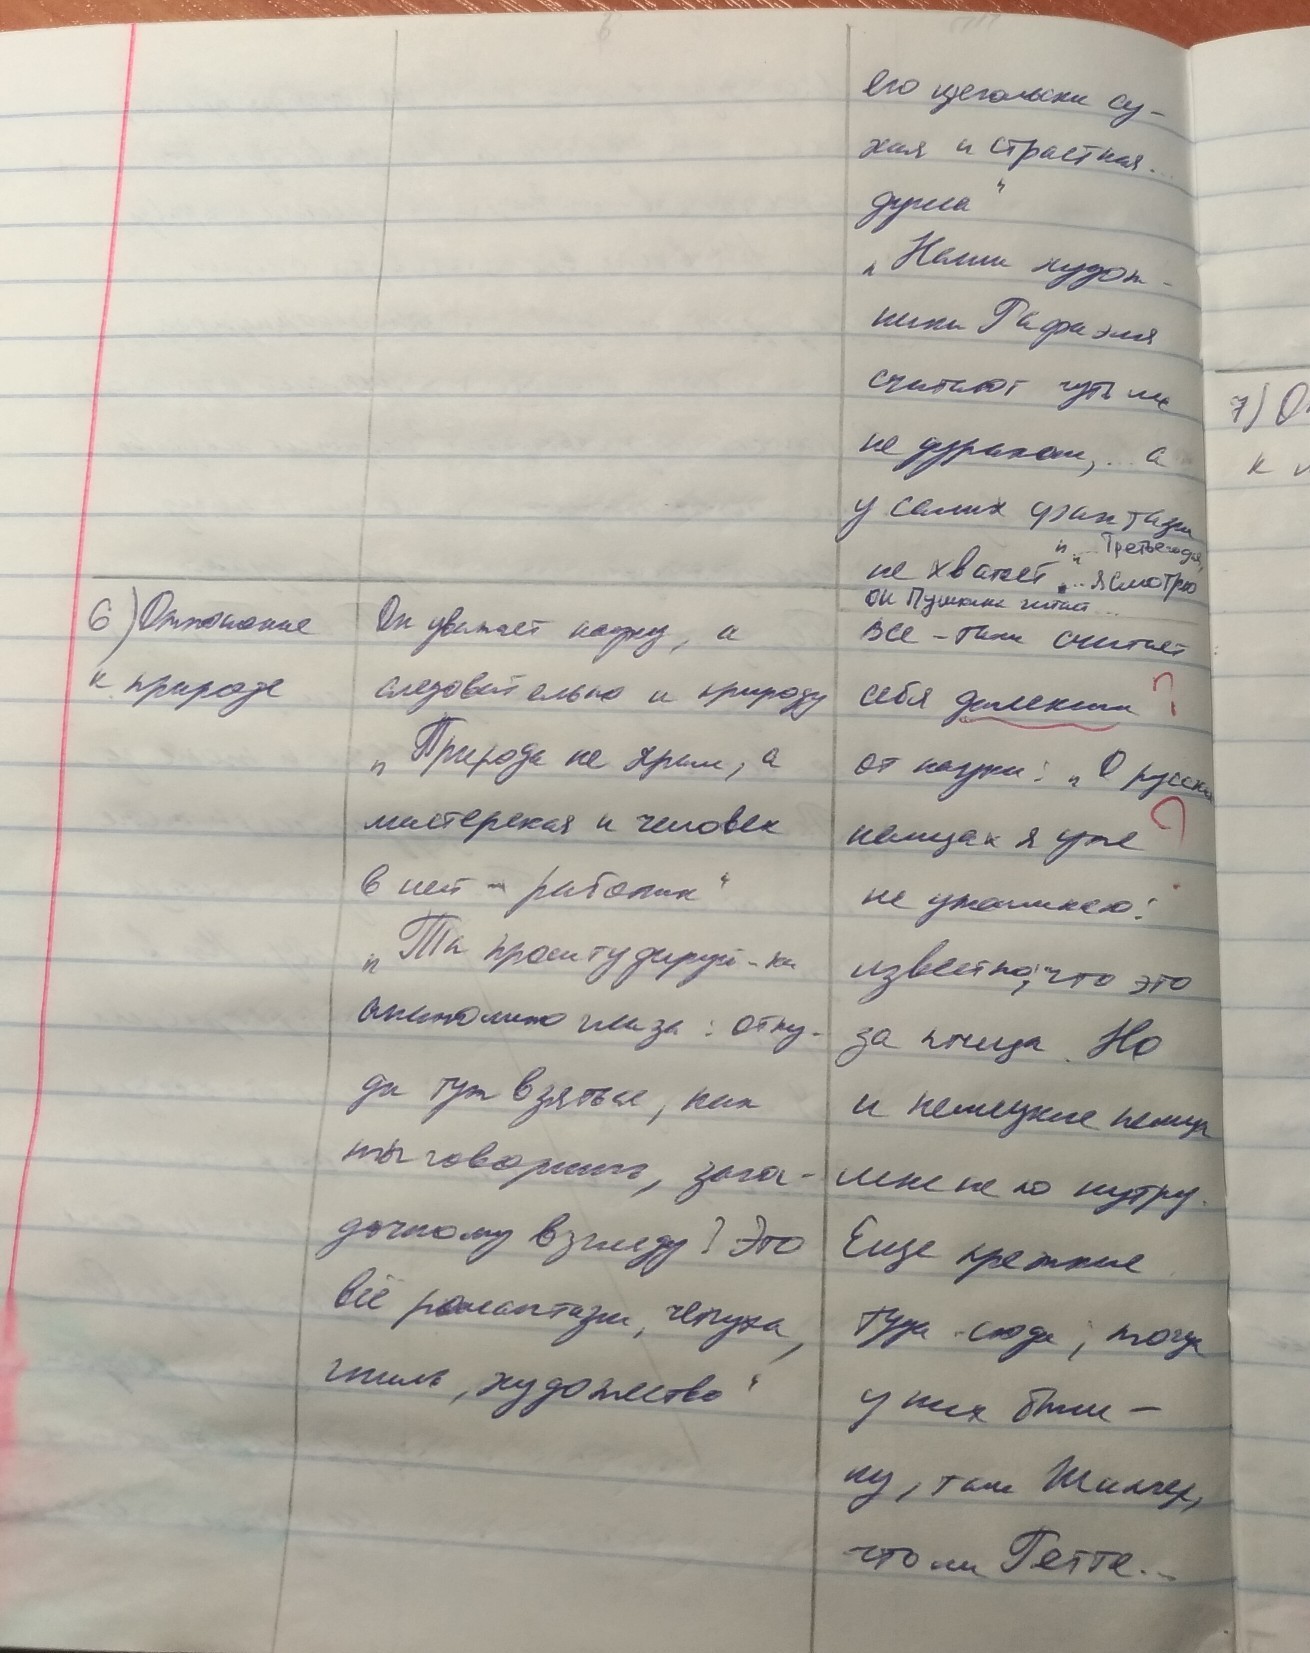 его щегольски су-
хая и страстная...
душа"
„Наши худож-
ники Рафаэля
считают чуть ли
не дураком, ... а
у самих фантазии
не хватает"
„...Третьего дня,
... я смотрю
он Пушкина читает...
6) Отношение
к природе
Он уважает науку, а
следовательно и природу
„Природа не храм, а
мастерская и человек
в ней - работник"
„Ты проштудируй-ка
анатомию глаза: отку-
да тут взяться, как
ты говоришь, зага-
дочному взгляду? Это
всё романтизм, чепуха,
гниль, художество"
все-таки считает
себя далеким ?
от науки: „О русских
немцах я уже ?
не упоминаю:
известно, что это
за птица. Но
и немецкие немцы
мне не по нутру.
Еще прежние
туда-сюда; тогда
у них были -
ну, там Шиллер,
что ли Гетте...
7) От
к